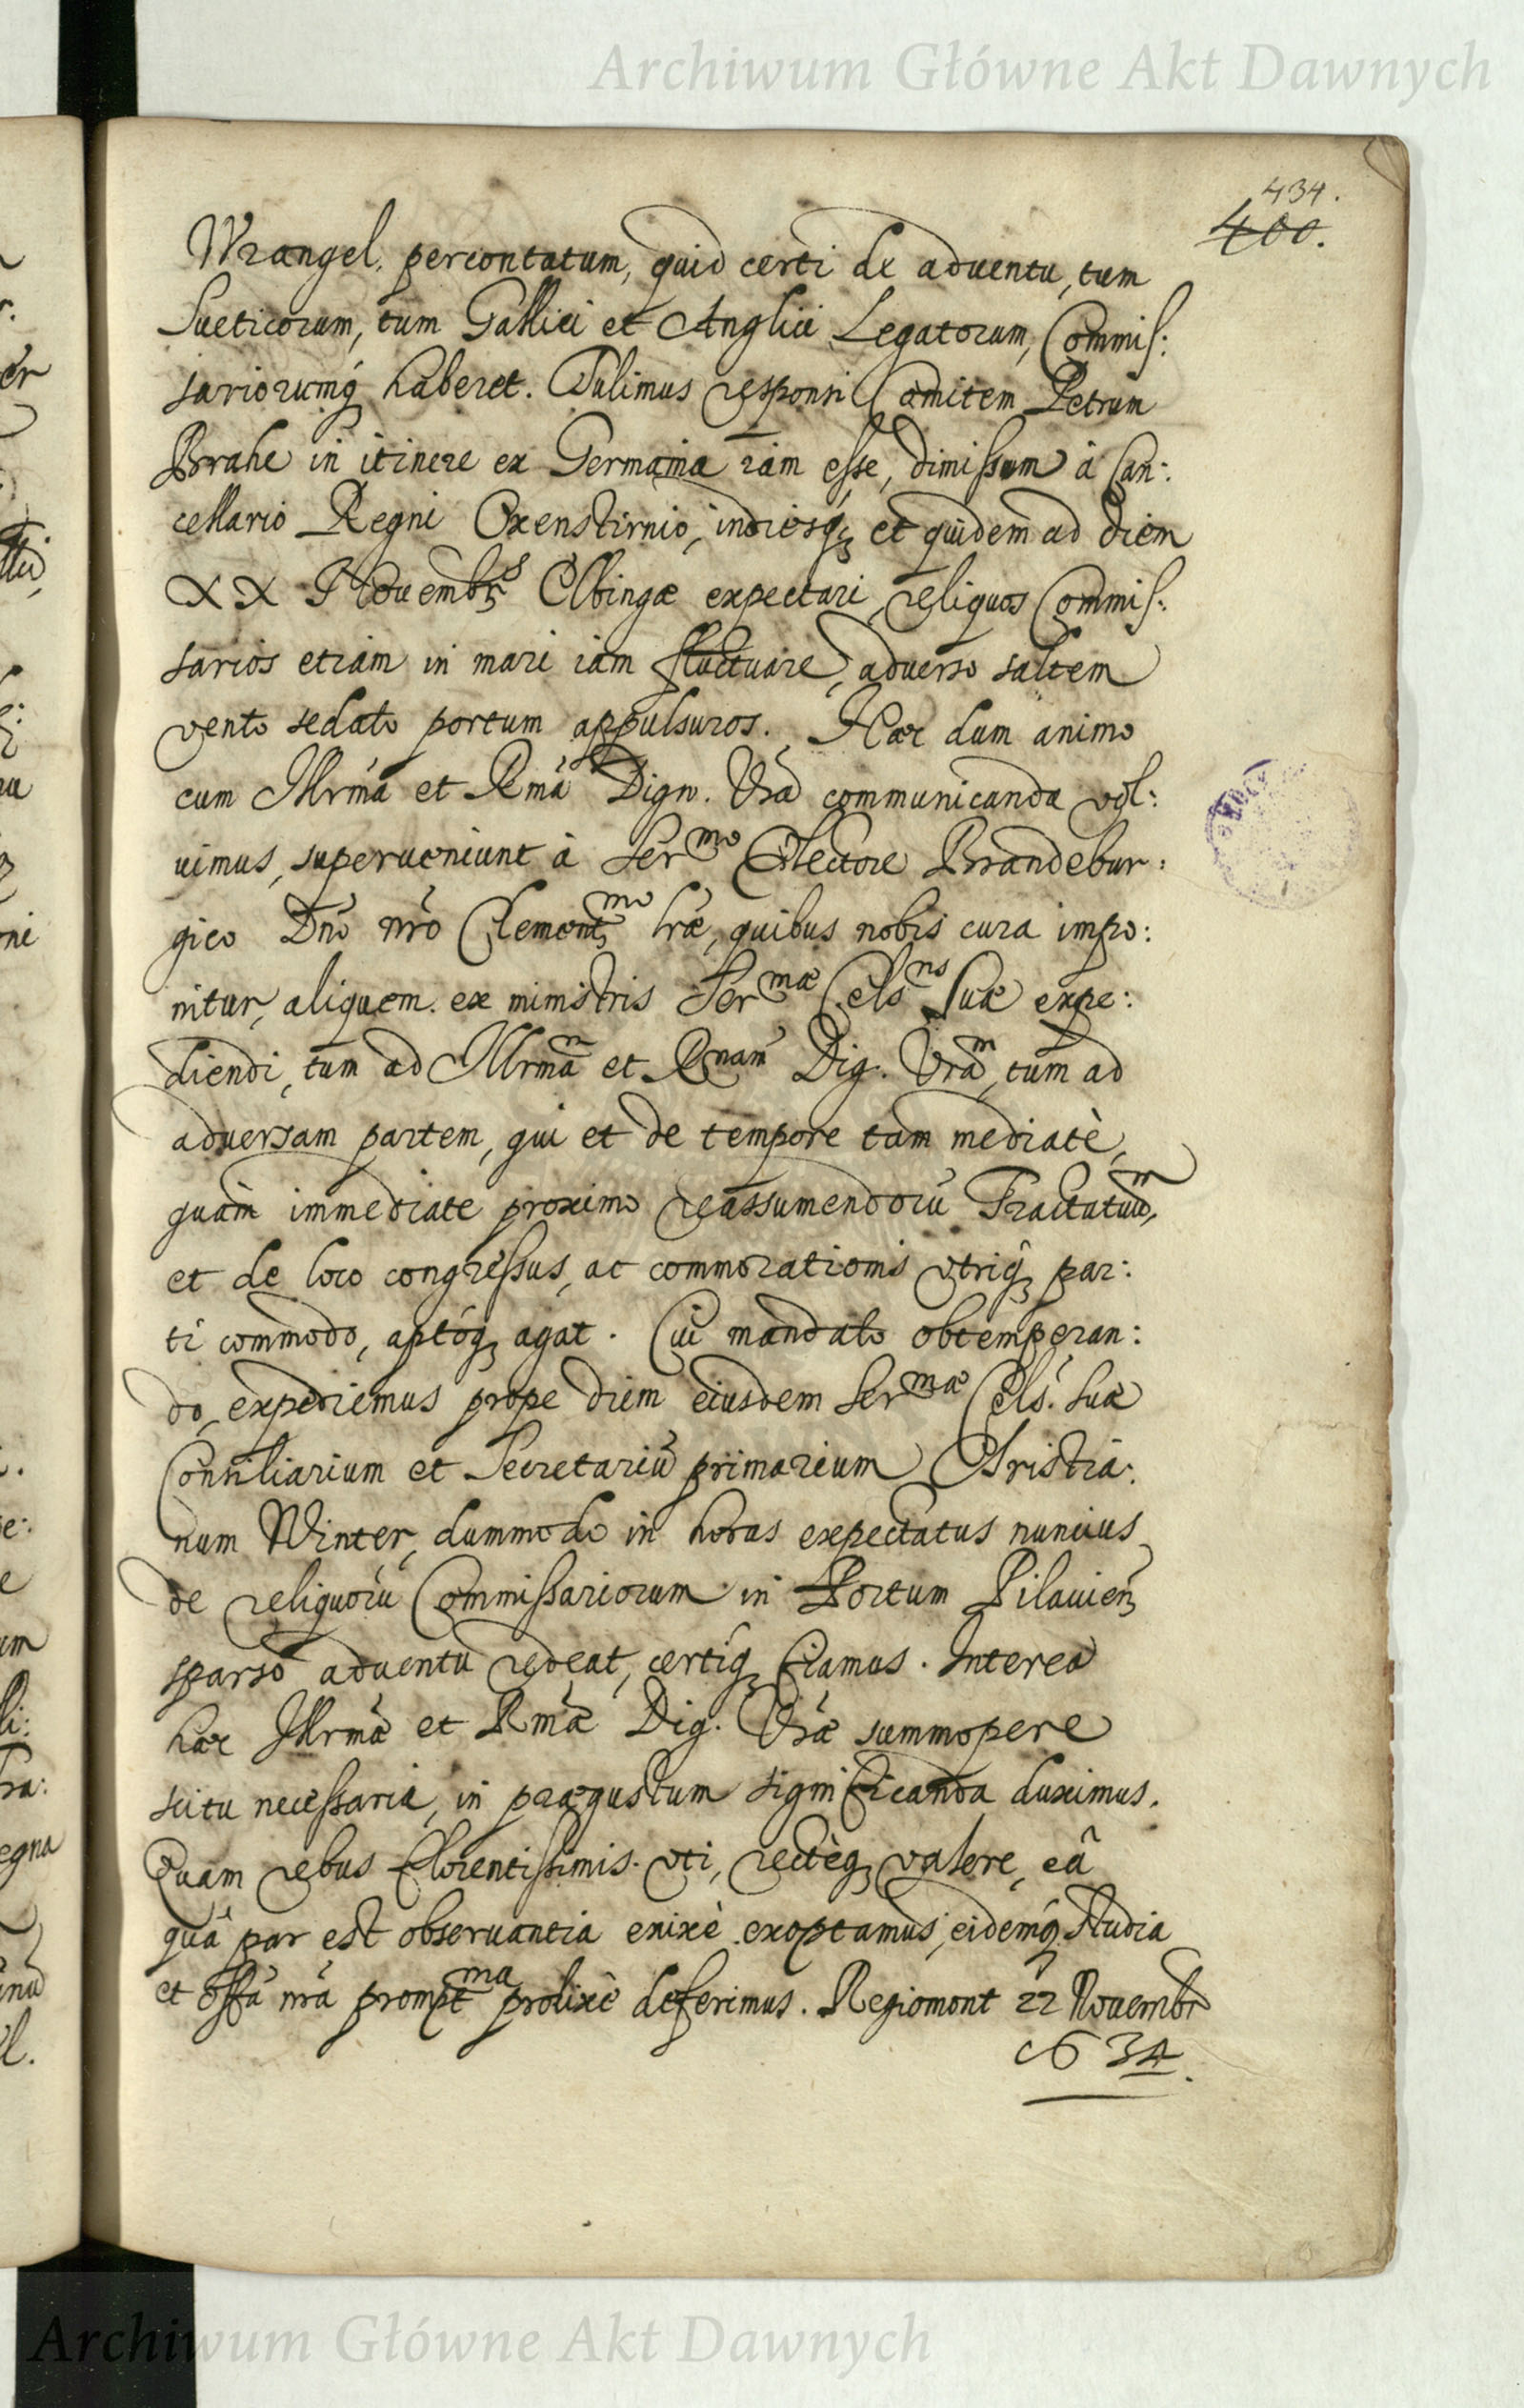 Archiwum Główne Akt Dawnych
434.
400.
Wrangel. percontatum, quid certi de aduentu, tum
Sueticorum, tum Gallici et Anglici Legatorum, Commis:
sariorumq́ haberet. Tulimus responsi Comitem Petrum
Brahe in itinere ex Germania iam esse, dimissum à Can:
cellario Regni Oxenstirnio, indiesq; et quidem ad diem
XX Nouembrs Elbingæ expectari, reliquos Commis:
sarios etiam in mari iam fluctuare, aduerso saltem
vento sedato portum appulsuros. Hæc dum animo
cum Illrmâ et Rmâ Dign. Vrâ communicanda vol:
uimus, superueniunt à Sermo Electore Brandebur:
gico Dnō nrō Clementmo lræ, quibus nobis cura impo:
nitur, aliquem ex ministris Sermæ Celsns Suæ expe:
diendi, tum ad Illrmam et Rmam Dig. Vram, tum ad
aduersam partem, qui et de tempore tam mediatè,
quàm immediate proximo reassumendorū Tractatuum,
et de loco congressus, ac commorationis vtriq; par:
ti commodo, aptoq́; agat. Cui mandato obtemperan:
do, expediemus prope diem eiusdem Sermæ Cels. Suæ
Consiliarium et Secretariū primarium Christia:
num Winter, dummodo in horas expectatus nuncius
de reliquorū Commissariorum in Portum Pilauien;
sparso aduentu redeat, certiq́; fiamus. Interea
hæc Illrmæ et Rmæ Dig. Vræ summopere
scitu necessaria, in prægustum significanda duximus.
Quam rebus florentissimis vti, rectèq; valere, eâ
quâ par est obseruantia enixè exoptamus, eidemq́; studia
et offa nra promptma prolixè deferimus. Regiomont 22 Nouembr
1634.
Archiwum Główne Akt Dawnych